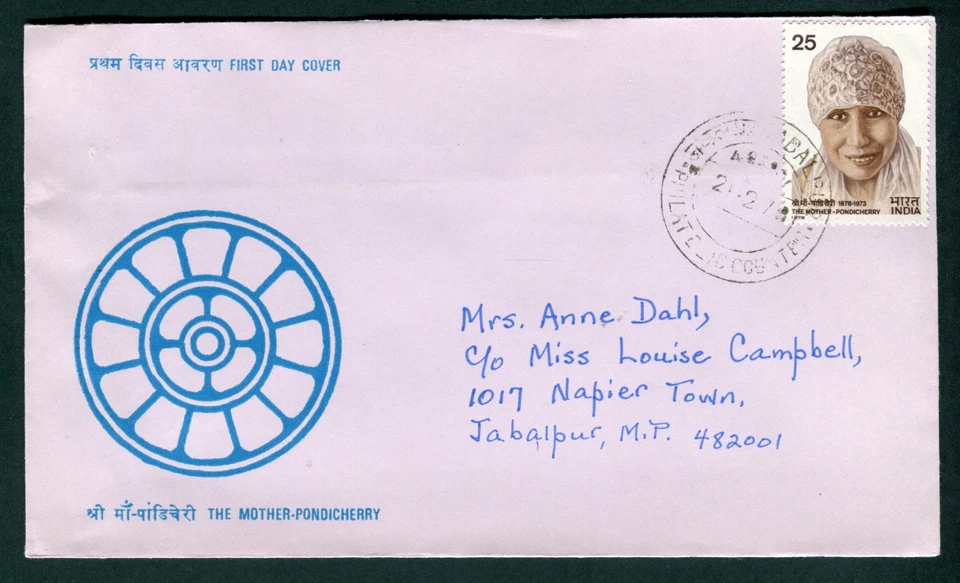 प्रथम दिवस आवरण FIRST DAY COVER
25
श्री माँ-पांडिचेरी 1878-1973
THE MOTHER-PONDICHERRY
1978
भारत
INDIA
PHILATELIC COUNTER
21.2.7
Mrs. Anne Dahl,
c/o Miss Louise Campbell,
1017 Napier Town,
Jabalpur, M.P. 482001
श्री माँ-पांडिचेरी THE MOTHER-PONDICHERRY